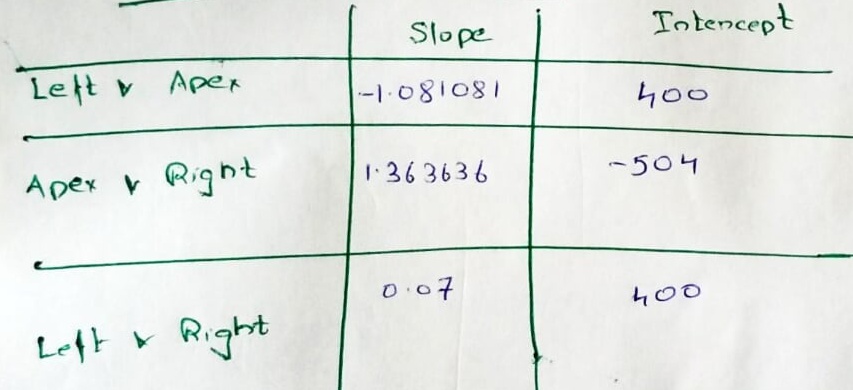 Slope Intencept
Left & Apex -1.081081 400
Apex & Right 1.363636 -504
Left & Right 0.07 400